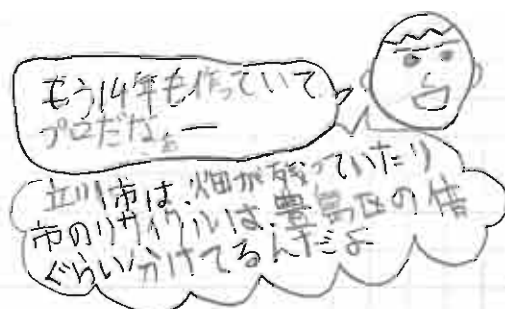 もう14年も作っていて
プロだなぁー
立川市は、畑が残っていたり
市のリサイクルは、豊島区の倍
ぐらい分けてるんだよ